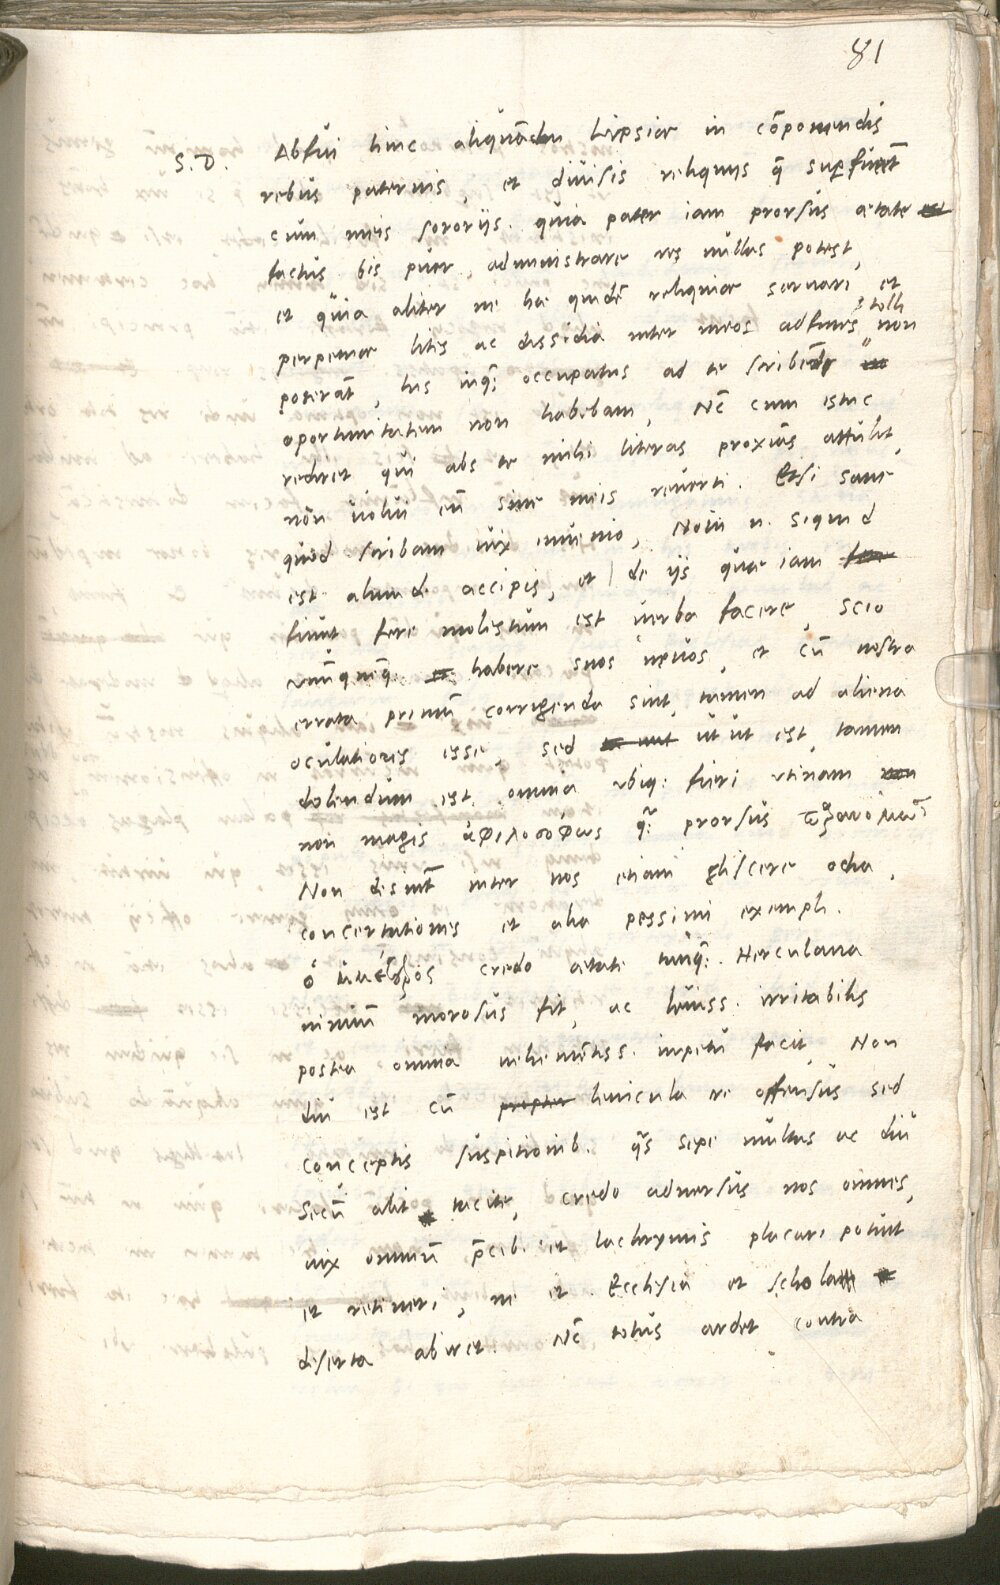 81
S. D. Abfui hinc aliquādiu Lipsiae in cōponendis
rebus paternis, et diuisis reliquijs q̄ supfuerūt
cum meis sororijs. quia pater iam prorsus aetate
factus bis puer, administrare res nullas potest,
et quia aliter ne hae quidē reliquiae seruari et
perpetuae litis ac dissidia inter meos adfines tolli non
poterāt, his inq̨ occupatus ad te scribēdi
oportunitatem non habebam, Nc̄ cum istuc
rediret qui abs te mihi literas proximas attulit,
non uolui eū sine meis reuerti. Etsi sane
quod scribam uix inuenio, Noui n. siquid
est aliunde accipis, et de ijs quae iam
fiunt fere molestum est uerba facere, scio
vnūquēq̨ habere suos neuos, et cū nostra
errata primū corrigenda sint, tamen ad aliena
oculatiores esse, sed ut ut est, tamen
dolendum est omnia ubiq: fieri vtinam
non magis ἀφιλοσόφως q̄ prorsus
Non desinūt inter nos etiam gliscere odia,
concertationes et alia pessimi exempli.
ὁ credo aetate tunq̨ Herculana
nimium morosus fit, ac leuiss. irritabilis
postea omnia uehemētiss. impetu facit, Non
diu est cū propter leuicula re offensus sed
conceptis suspitionib. q̄s sepe multas ac diu
Secū alit tacite, credo aduersus nos omnes,
uix omniū p̄cib. et lachrymis placari potuit
et retineri, ne et Ecclesia et schola
deserta abiret. Nc̄ totus ardet contra